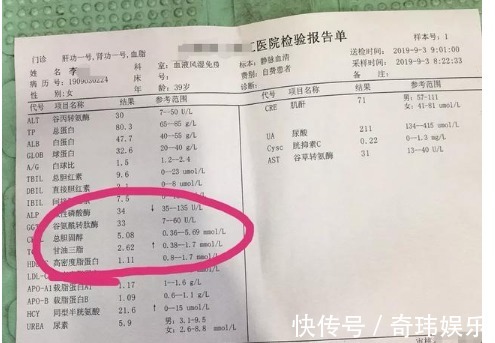 江医院检验报告单
门诊 肝功一号,肾功一号,血脂
样本号:1
姓名:李
科 室:血液风湿免疫
标本:静脉血清
送检时间:2019-9-3 9:01:00
病 历 号:1909030224
床 号:
费别:自费患者
采样时间:2019-9-3 8:22:33
性别:女
年龄:39岁
诊断:
代号 项目 结果 参考范围
代号 项目 结果 参考范围
ALT 谷丙转氨酶 30 7--50 U/L
CRE 肌酐 71 男:57-111
女:41-81 umol/L
TP 总蛋白 80.3 65--85 g/L
ALB 白蛋白 47.7 40--55 g/L
UA 尿酸 211 134--415 umol/L
GLOB 球蛋白 32.6 20--40 g/L
Cysc 胱抑素C 0.22 0--1.3 mg/L
A/G 白球比 1.5 1.2--2.4
AST 谷草转氨酶 31 13--40 U/L
TBIL 总胆红素 9.6 0--23 umol/L
DBIL 直接胆红素 0--8 umol/L
IBIL
ALP 性磷酸酶 34 ↓ 35--135 U/L
GGT 谷氨酰转肽酶 33 7--60 U/L
总胆固醇 5.08 0.36--5.69 mmol/L
甘油三脂 2.62 ↑ 0.38--1.7 mmol/L
高密度脂蛋白 1.11 0.8--1.7 mmol/L
LDL-C
APO-AI 载脂蛋白A1 1.17 1--1.6 g/L
APO-B 载脂蛋白B 1.09 0.6--1.1 g/L
HCY 同型半胱氨酸 21.6 ↑ 0--15 umol/L
UREA 尿素 5.9 男:3.1-9.5
女:2.6-8.8 mmol/L
快传号/奇玮娱乐